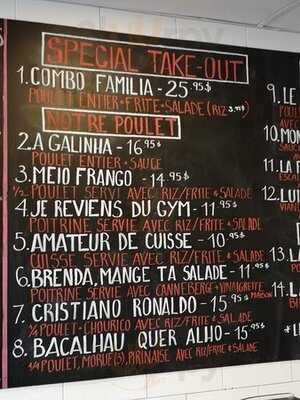 SPECIAL TAKE-OUT
1. COMBO FAMILIA - 25.95$
POULET ENTIER + FRITE + SALADE (RIZ 3.99$)
NOTRE POULET
2. A GALINHA - 16.95$
POULET ENTIER + SAUCE
3. MEIO FRANGO - 14.95$
1/2 POULET SERVI AVEC RIZ/FRITE & SALADE
4. JE REVIENS DU GYM - 11.95$
POITRINE SERVIE AVEC RIZ/FRITE + SALADE
5. AMATEUR DE CUISSE - 10.95$
CUISSE SERVIE AVEC RIZ/FRITE + SALADE
6. BRENDA, MANGE TA SALADE - 11.95$
POITRINE SERVIE AVEC CANNEBERGE + VINAIGRETTE MAISON
7. CRISTIANO RONALDO - 15.95$
1/4 POULET + CHOURICO AVEC RIZ/FRITE & SALADE
8. BACALHAU QUER ALHO - 15.95$
1/4 POULET, MORUE(3), PIRINAISE AVEC RIZ/FRITE & SALADE
9. LE
10. MON
11. LA
12.
13. LA
14.